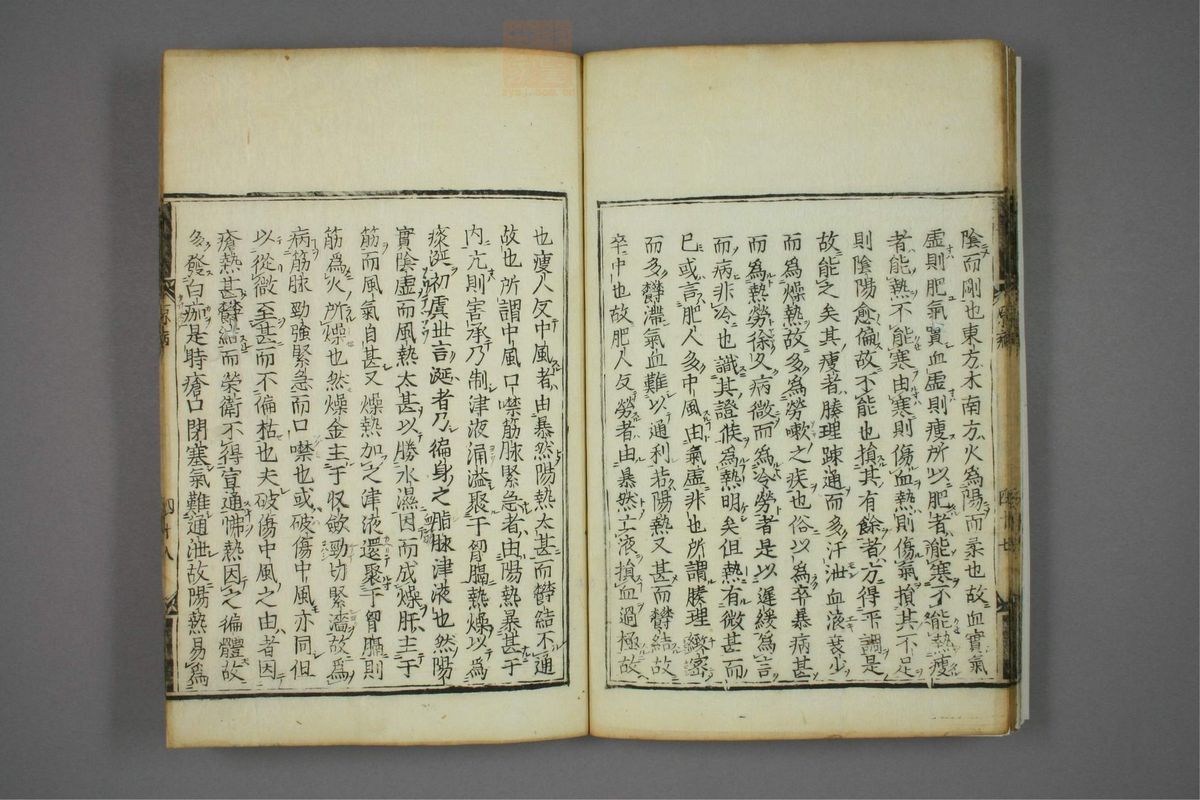 陰而剛也東方木南方火為陽而柔也故血實氣
虛則肥氣實血虛則瘦所以肥者能寒不能熱瘦
者能熱不能寒由寒則傷血熱則傷氣損其不足
則陰陽愈偏故不能也損其有餘者方得平調是
故能之矣其瘦者腠理踈通而多汗泄血液衰少
而為燥熱故多為勞嗽之疾也俗以為卒暴病甚
而為熱勞徐久病微而為冷勞者是以遲緩為言
而病非冷也識其證候為熱明矣但熱有微甚而
已或言肥人多中風由氣虛非也所謂腠理緻密
而多欝滯氣血難以通利若陽熱又甚而欝結故
卒中也故肥人反勞者由暴然亡液損血過極故
也瘦人反中風者由暴然陽熱太甚而欝結不通
故也所謂中風口噤筋脉緊急者由陽熱暴甚于
内亢則害承乃制津液涌溢聚于胷膈熱燥以為
痰涎初虞世言涎者乃徧身之脂脉津液也然陽
實陰虛而風熱太甚以勝水濕因而成燥肝主于
筋而風氣自甚又燥熱加之津液還聚于胷膈則
筋為火所燥也然燥金主于収斂勁切緊濇故為
病筋脉勁強緊急而口噤也或破傷中風亦同但
以從微至甚而不偏枯也夫破傷中風之由者因
瘡熱甚欝結而榮衛不得宣通怫熱因之徧體故
多發白痂是時瘡口閉塞氣難通泄故陽熱易為